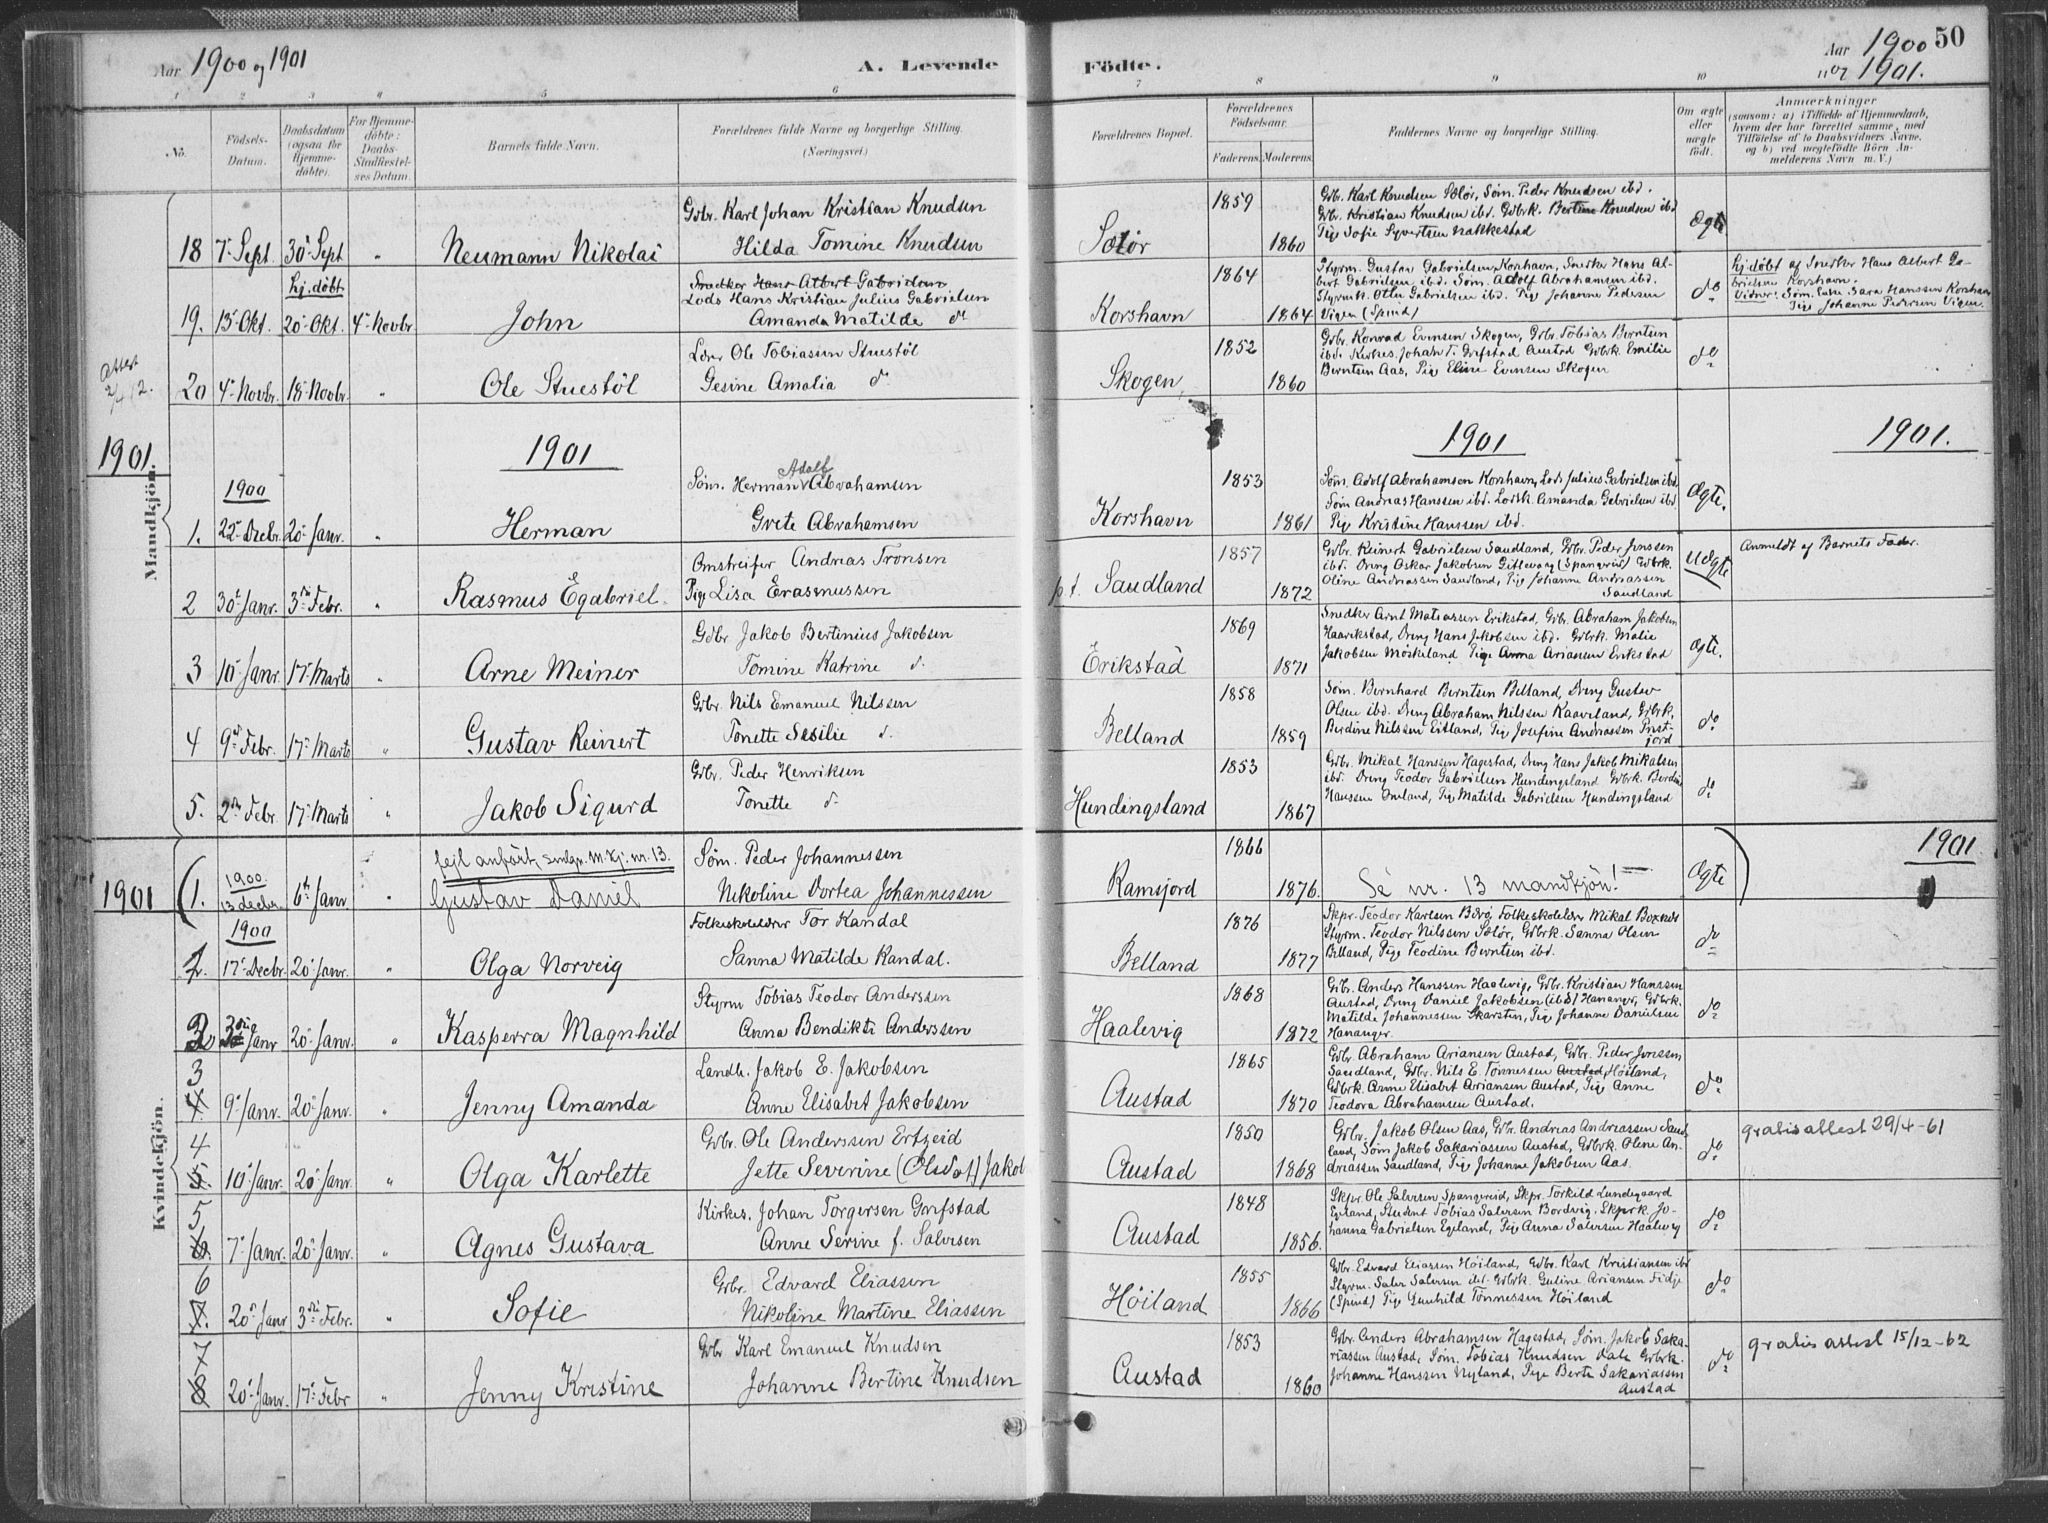 Aar 1900 og 1901
A. Levende Födte.
Aar 1900 50
og 1901.
1 2 3 4 5 6 7 8 9 10
No.
Födsels-Datum.
Daabsdatum (ogsaa for Hjemmedöbte).
For Hjemmedöbte: Daabs-Stadfæstelses Datum.
Barnets fulde Navn.
Forældrenes fulde Navne og borgerlige Stilling. (Næringsvei.)
Forældrenes Bopæl.
Forældrenes Födselsaar.
Faderens. Moderens.
Faddernes Navne og borgerlige Stilling.
Om ægte eller uægte födt.
Anmærkninger
(saasom: a) i Tilfælde af Hjemmedaab, hvem der har forrettet samme, med Tilföielse af to Daabsvidners Navne. og b) ved uægtefödte Börn Anmelderens Navn m. V.)
18 7de Sept. 30te Sept " Neumann Nikolai
Gdbr. Karl Johan Kristian Knudsen
Hilda Tomine Knudsen
Sælör 1859 1860
Gdbr. Karl Knudsen Sælör, Söm. Peder Knudsen ibd.
Gdbr. Kristian Knudsen ibd. Gdbrk. Bertine Knudsen ibd
Pige Sofie Syvertsen Nakkestad
Ægte
hj. döbt
19. 13de Okt. 20de Okt. 4de Novbr. John
Snedker Hans Albert Gabrielsen
Lods Hans Kristian Julius Gabrielsen
Amanda Matilde do
Korshavn 1864 1864
Styrm. Gustav Gabrielsen Korshavn, Snedker Hans Albert Gabrielsen ibd. Söm. Adolf Abrahamsen ibd.
Styrmk. Otilie Gabrielsen ibd. Pige Johanne Pedersen
Vigen (Spind)
do
hj. döbt af Snedker Hans Albert Gabrielsen Korshavn.
Vidner: Söm. Enke Sara Hanssen Korshavn
Pige Johanne Pedersen Vigen.
Attest
2/4 12.
20 4de Novbr. 18de Novbr. " Ole Stuestöl
Lærer Ole Tobiassen Stuestöl
Gesine Amalia do
Skogen 1852 1860
Gdbr. Konrad Evensen Skogen, Gdbr. Tobias Berntsen
ibd. Kirkes. Johan T. Grefstad Austad Gdbrk. Emilie
Berntsen Aas, Pige Eline Evensen Skogen
do
1901 1901 1901 1901.
Mandkjön.
1900
1. 22de Decbr. 20de Janr. " Herman
Söm. Herman Adolf Abrahamsen
Grete Abrahamsen
Korshavn 1853 1861
Söm. Adolf Abrahamsen Korshavn, Lods Julius Gabrielsen ibd.
Söm Andreas Hanssen ibd. Lodsk. Amanda Gabrielsen ibd
Pige Kristine Hanssen ibd.
Ægte.
2 30te Janr. 3die Febr. " Rasmus Egabriel.
Omstreifer Andreas Tronsen
Pige Lisa Erasmussen
p.t. Saudland 1857 1872
Gdbr. Reinert Gabrielsen Saudland, Gdbr. Peder Jonssen
ibd. Dreng Oskar Jakobsen Gitlevaag (Spangereid) Gdbrk.
Oline Andreassen Saudland, Pige Johanne Andreassen
Saudland
Uægte
Anmeldt af Barnets Fader.
3 10de Janr. 17de Marts " Arne Meiner
Gdbr Jakob Bertinius Jakobsen
Tomine Katrine do
Erikstad 1869 1871
Snedker Arnt Matiassen Erikstad, Gdbr. Abraham Jakobsen
Haarikstad, Dreng Hans Jakobsen ibd. Gdbrk. Malie
Jakobsen Möskeland Pige Anna Ariansen Erikstad
Ægte.
4 9de Febr. 17de Marts " Gustav Reinert
Gdbr. Nils Emanuel Nilssen
Tonette Sesilie do
Belland 1858 1859
Söm. Bernhard Berntsen Belland, Dreng Gustav
Olsen ibd. Dreng Abraham Nilssen Kaaveland, Gdbrk.
Berdine Nilssen Eitland, Pige Josefine Andreassen Prestjord
do
5. 2den Febr. 17de Marts " Jakob Sigurd
Gdbr. Peder Henriksen
Tonette do
Hundingsland 1853 1867
Gdbr. Mikal Hanssen Hagestad, Dreng Hans Jakob Mikalsen
ibd. Dreng Teodor Gabrielsen Hundingsland Gdbrk. Berdine
Hanssen Omland, Pige Matilde Gabrielsen Hundingsland
do
1901 1901
Kvindekjön.
fejl anfört, smlgn. M.kj. nr. 13.
1. 1900 13 decbr. 6te Janr. " Gustav Daniel
Söm. Peder Johannessen
Nikoline Dortea Johannessen
Ramsjord 1866 1876.
Se nr. 13 mandkjön!
Ægte
1900
2. 17de Decbr. 20de Janr. " Olga Norveig
Folkeskolelærer Tor Kandal
Sanna Matilde Kandal.
Belland 1876 1877
Skpr. Teodor Karlsen Bövö, Folkeskolelærer Mikal
Styrm. Teodor Nilssen Sælör, Gdbrk. Sanna Olsen
Belland, Pige Teodine Berntsen ibd.
do
3. 3die Janr 20de Janr. " Kasperra Magnhild
Styrm Tobias Teodor Anderssen
Anna Bendikte Anderssen
Haalevig 1868 1872
Gdbr. Anders Hanssen Haalevig, Gdbr. Kristian Hanssen
Austad, Dreng Daniel Jakobsen (ibd) Hananger, Gdbrk.
Matilde Johannessen Skarsten, Pige Johanne Danielsen
Hananger.
do
3
4. 9de Janr. 20de Janr. " Jenny Amanda
Landh. Jakob E. Jakobsen
Anne Elisabet Jakobsen
Austad 1865 1870
Gdbr. Abraham Ariansen Austad, Gdbr. Peder Jonssen
Saudland, Gdbr. Nils E. Tönnessen Austad, Höiland,
Gdbrk. Anne Elisabet Ariansen Austad, Pige Anne
Teodora Abrahamsen Austad.
do
4
5. 10de Janr. 20de Janr. " Olga Karlette
Gdbr. Ole Anderssen Ertzeid
Jette Severine (Olsdot) Jakob
Austad 1850 1868
Gdbr. Jakob Olsen Aas, Gdbr. Andreas Andreassen Saudland, Söm Jakob Sakariassen Austad, Gdbrk. Olene Andreassen Saudland, Pige Johanne Jakobsen Aas.
do
gratis attest 29/4-61
5
6. 7de Janr. 20de Janr. " Agnes Gustava
Kirkes. Johan Torgersen Grefstad
Anne Serine f. Salvesen
Austad 1848 1856.
Skpr. Ole Salvesen Spangereid, Skpr. Torkild Lundegaard
Egeland, Student Tobias Salvesen Bordvig. Skprk. Johanna Gabrielsen Egeland, Pige Anna Salvesen Haalevig
do
6
7. 20de Janr 3die Febr. " Sofie
Gdbr. Edvard Eliassen
Nikoline Martine Eliassen
Höiland 1855 1866
Gdbr. Edvard Eliassen Höiland, Gdbr. Karl Kristiansen ibd
Styrm. Salve Salvesen ibd. Gdbrk. Guline Ariansen Fidje
(Spind) Pige Gunhild Tönnessen Höiland
do
7
8 20de Janr. 17de Febr " Jenny Kristine
Gdbr Karl Emanuel Knudsen
Johanne Bertine Knudsen
Austad 1853 1860
Gdbr. Anders Abrahamsen Hagestad, Söm. Jakob Sakariassen Austad, Söm. Tobias Knudsen Dale Gdbrk.
Johanne Hanssen Nyland, Pige Berte Sakariassen
Austad
do
gratis attest 15/12-62